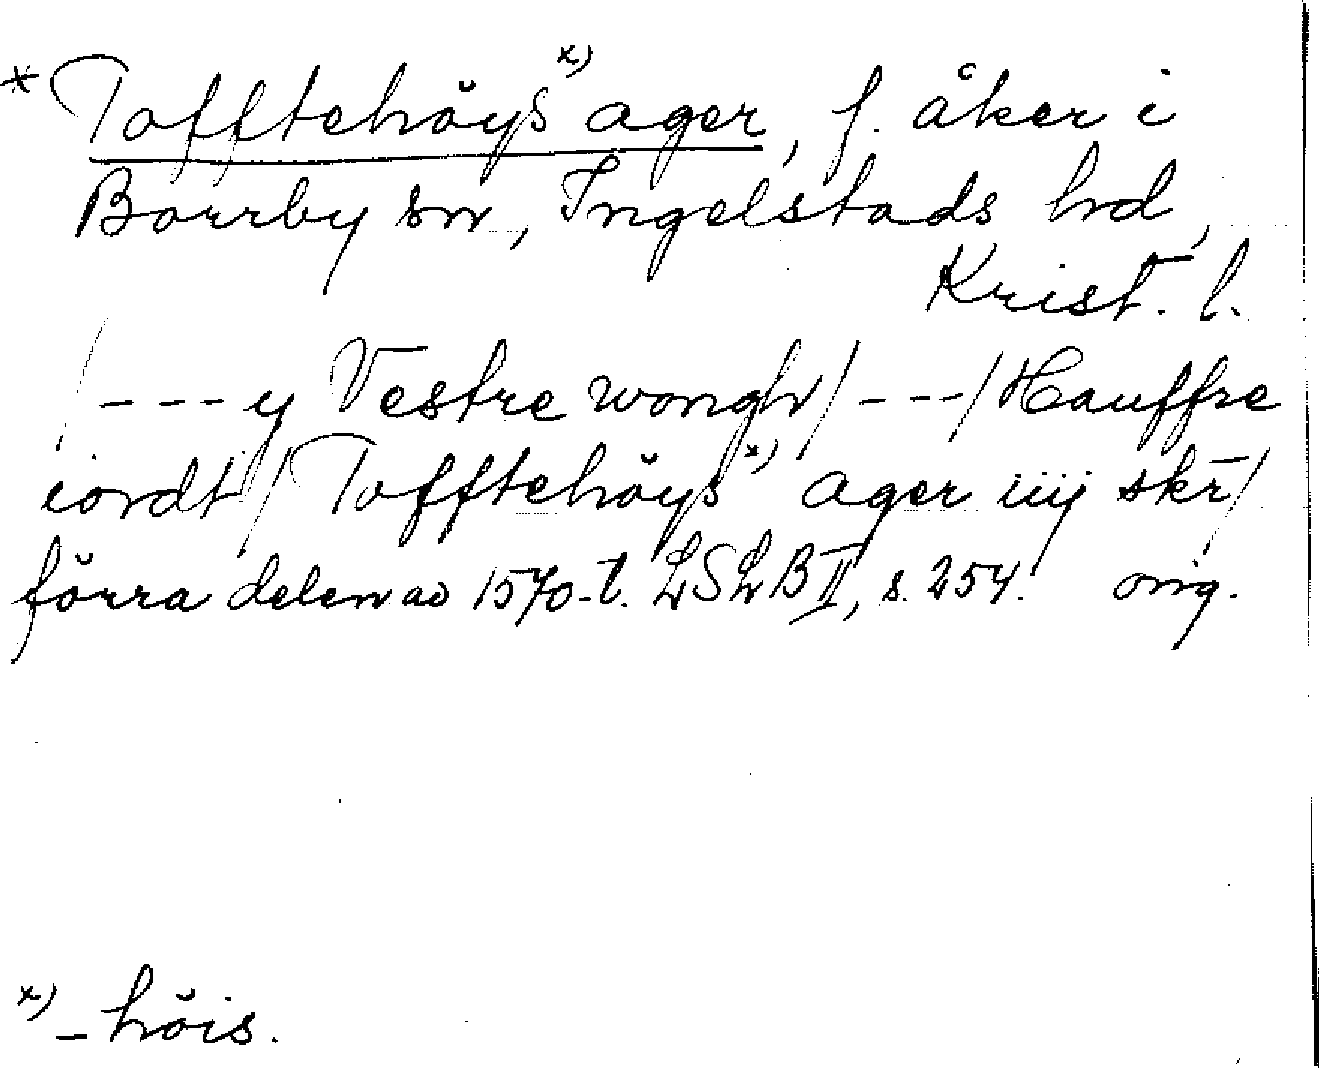 * Tofftehŏys x) ager, f. åker i
Borrby sn, Ingelstads hd,
Krist. l.
/---y Vestre wongh/---/Hauffre
iordt/Tofftehŏys x) ager iiij skr̄/
förra delen av 1570-t. LSLB II, s. 254. orig.
x) -hŏis.